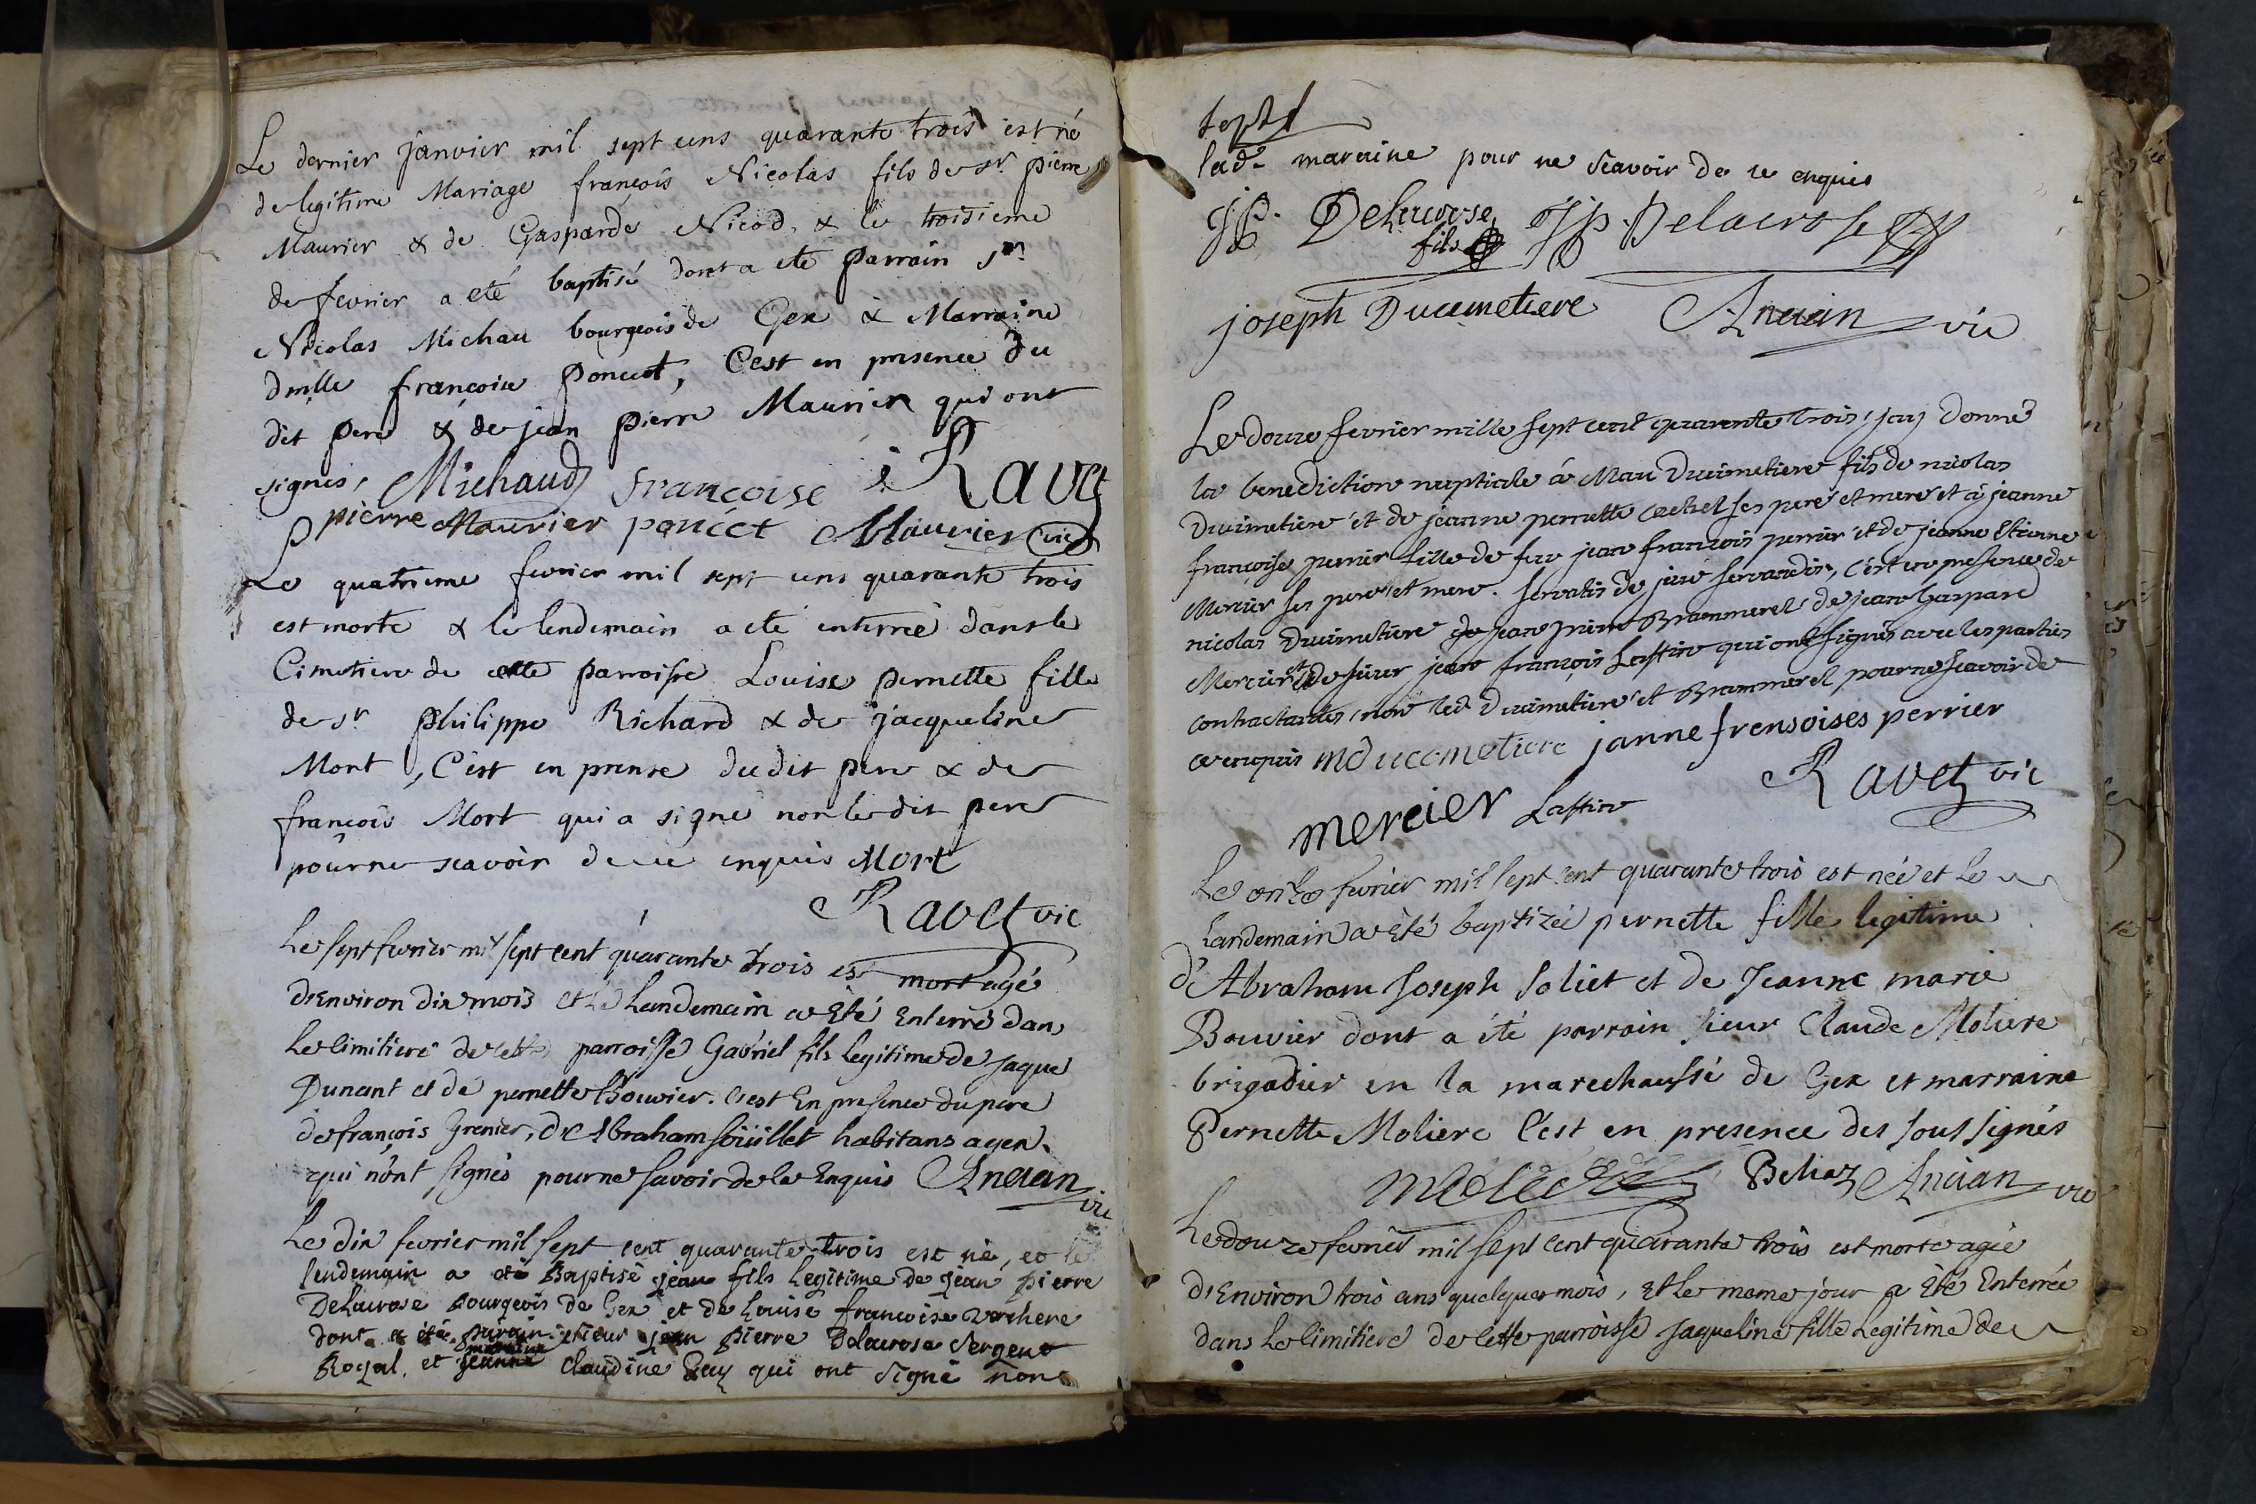 Le dernier janvier mil sept cens quarante trois est né
de legitime Mariage françois Nicolas fils de sr. pierre
Maurier & de Gasparde Nicod, & le troisieme
de fevrier a eté baptisé dont a ete Parrain sr.
Nicolas Michau bourgeois de Gex & Marraine
dmlle françoise Poncet, C'est en presence du
dit pere & de jean pierre Maurier qui ont
signés, Michaud françoise Ravet
pierre Maurier poncet Maurier vic
Le quatrieme fevrier mil sept cens quarante trois
est morte & le lendemain a eté enterreé dans le
Cimetiere de cette parroisse Louise pernette fille
de sr. philippe Richard & de jacqueline
Mort, C'est en presence du dit pere & de
françois Mort qui a signé non le dit pere
pour ne scavoir de ce enquis Mort
Ravet vic
Le sept fevrier mil sept cent quarante trois est mort agé
d'Environ dix mois et le Landemain a Eté Enterré dans
Le Cimitiere de cette parroisse Gabriel fils legitime de jaque
Dunant et de pernette Bouvier. C'est En presence du pere
de françois Grenier, de Abraham soüillet habitans a gex
qui n'ont signés pour ne savoir de ce Enquis Ancian vic
Le dix fevrier mil sept cent quarante trois est né, et le
lendemain a eté Baptisé jean fils Legitime de jean pierre
Delacrose Bourgeois de Gex et de Louise francoise verchere
dont a été parain sieur jean pierre Delacrose Sergent
Royal, et maraine jeanne claudine Gay qui ont signé non
lad. maraine pour ne scavoir de ce enquis
jp. Delacrose fils Jp. Delacrose
joseph Ducimetiere Ancian vic
Le douze fevrier mille sept cent quarente trois j'ay donné
la benediction nuptiale á Mau Ducimetiere fils de nicolas
Ducimetiere et de jeanne pernette ses pere et mere et á jeanne
françoise perrier fille de feu jean françois perrier et de jeanne Etienne
Mercier ses pere et mere. servatis de jure servandis, c'est en presence de
nicolas Ducimetiere de jean Brammerel de jean Gaspard
Mercier et de sieur jean françois Lastire qui ont signés avec les parties
contractantes, non led Ducimetiere et Brammerel pour ne scavoir de
ce enquis mducemetiere janne frensoises perrier
Ravet vic
mercier Lastire
Le onze fevrier mil sept cent quarante trois est née et le
Landemain a Eté baptizée pernette fille legitime
d'Abraham Joseph soliet et de Jeanne marie
Bouvier dont a été parrain sieur Claude Moliere
brigadier en la marechaussé de Gex et marraine
Pernette Moliere C'est en presence des sous signés
Beliaz Ancian vic
Le douze fevrier mil sept Cent quarante trois est morte agée
d'Environ trois ans quelques mois, Et le meme jour a Eté Enterrée
dans Le Cimitiere de Cette parroisse Jaqueline fille Legitime de